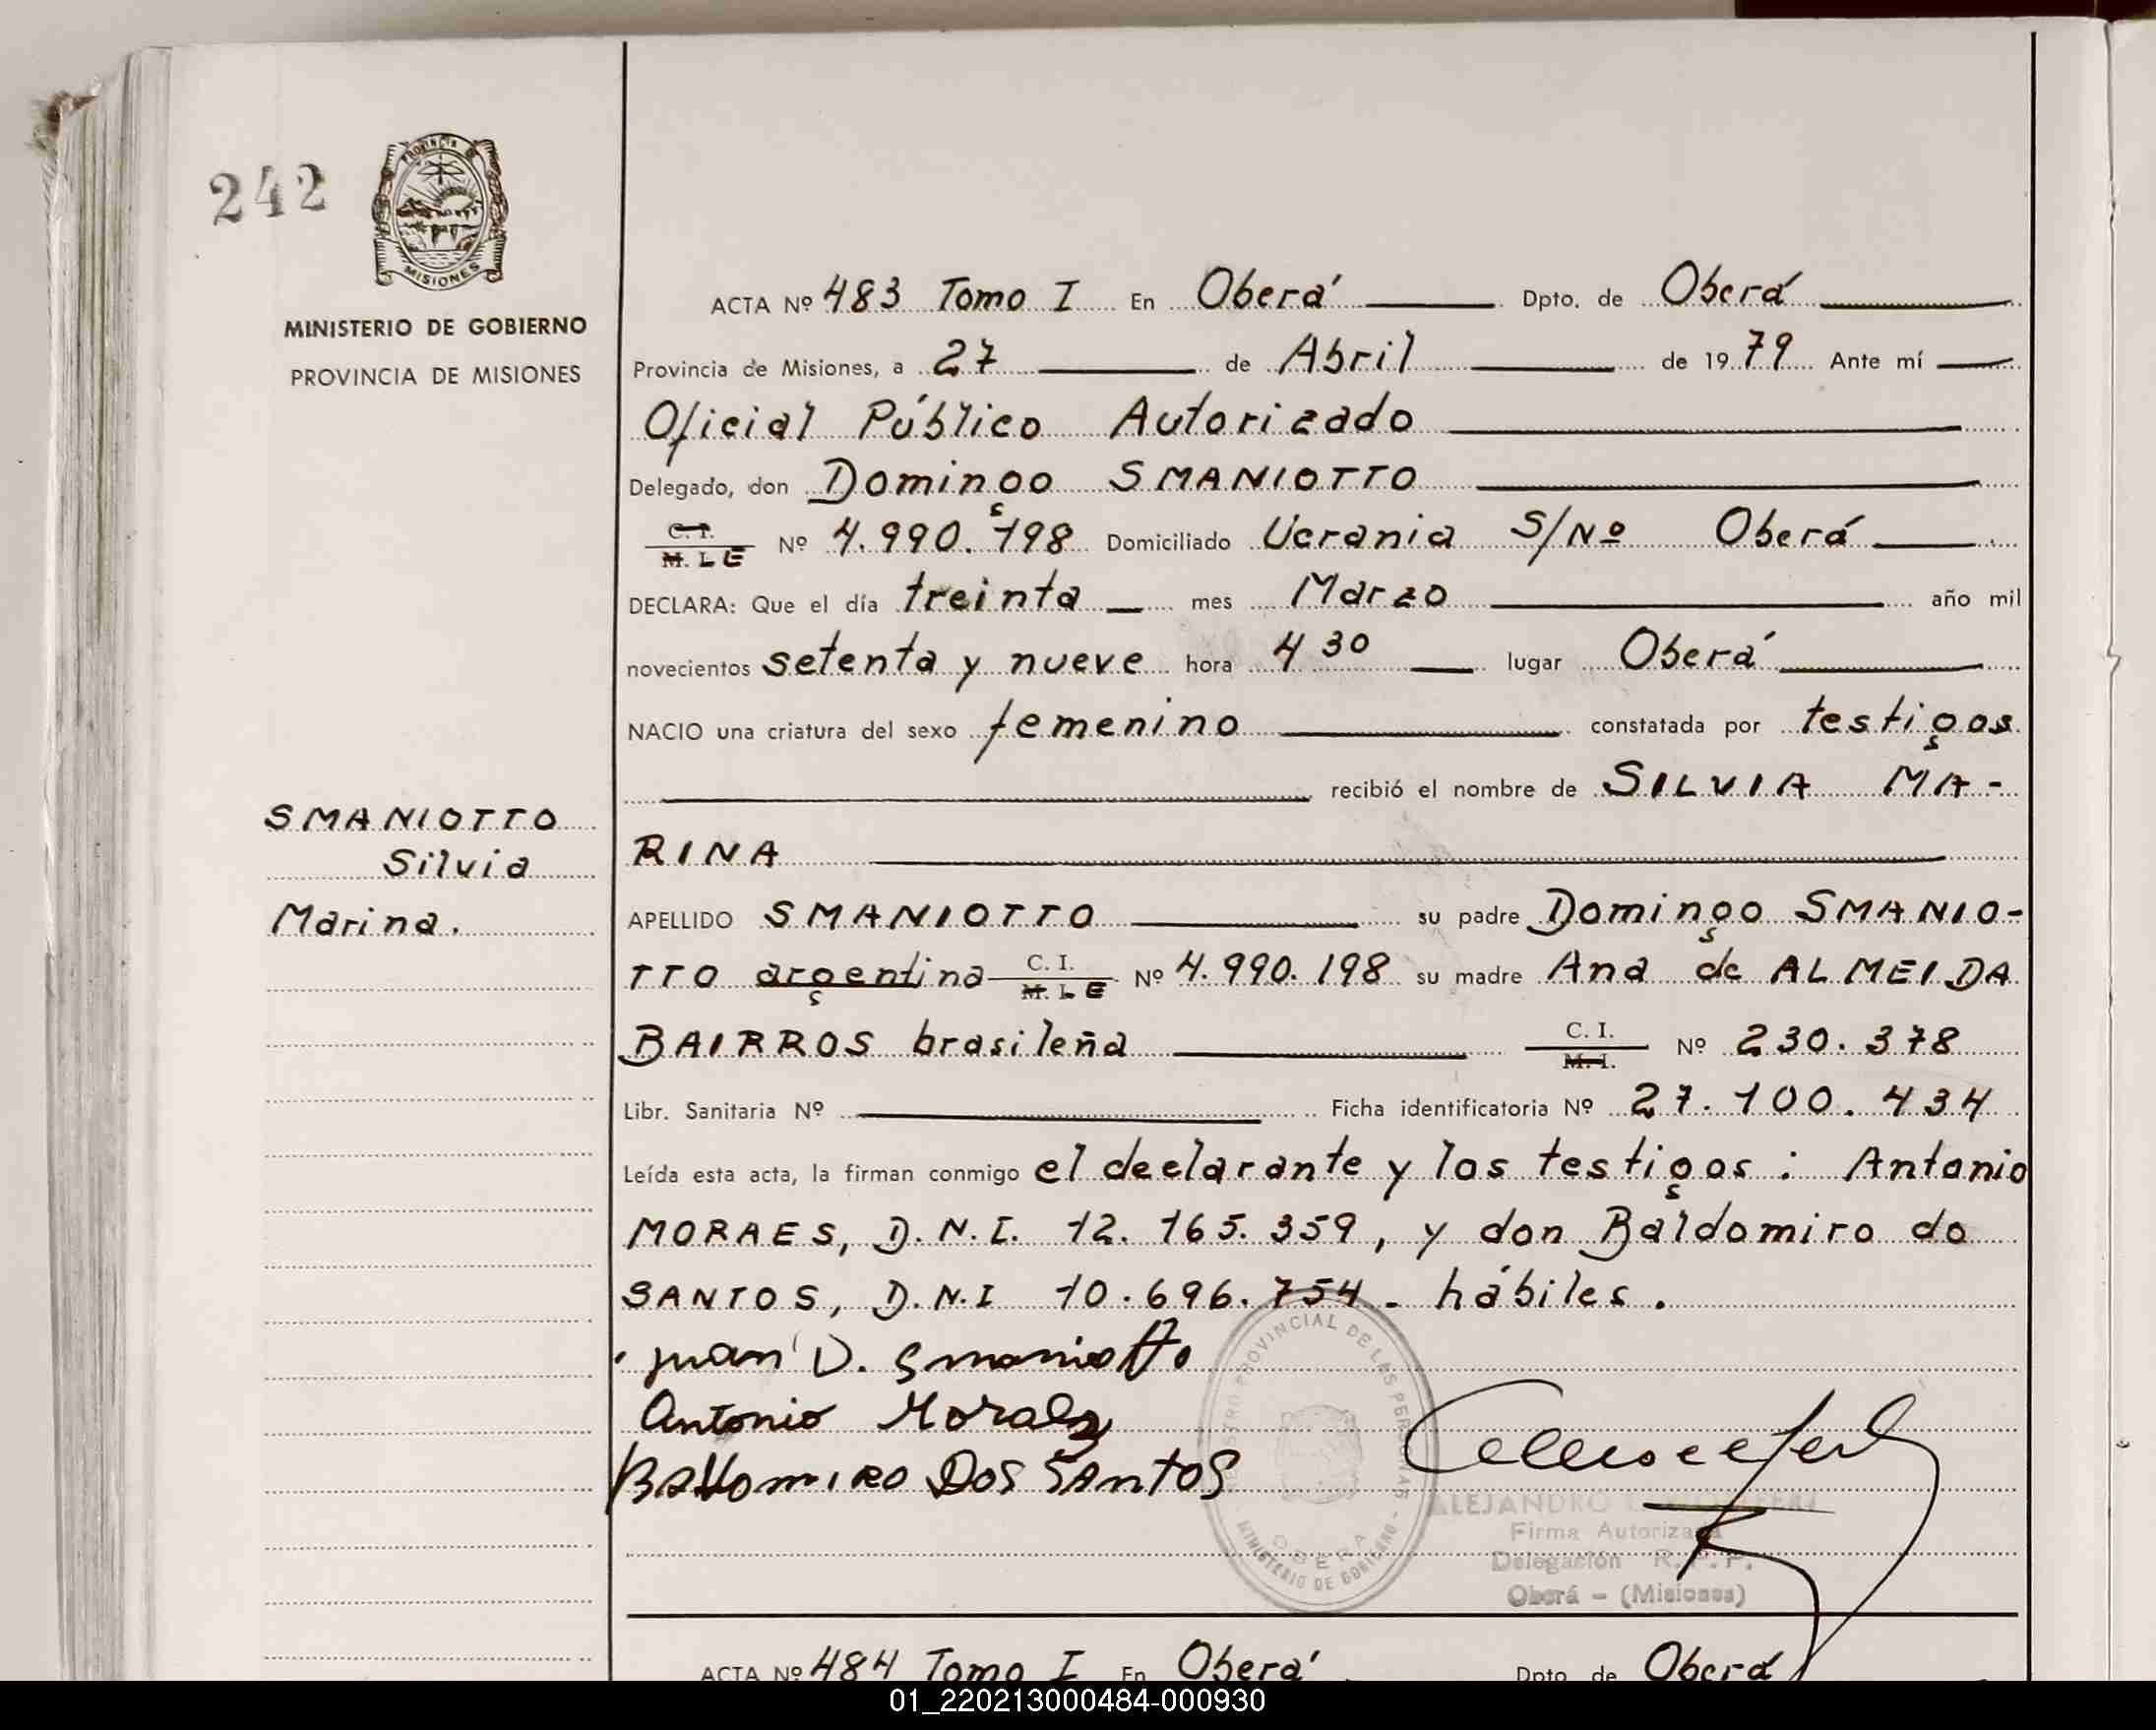 242
PROVINCIA DE
MISIONES
MINISTERIO DE GOBIERNO
PROVINCIA DE MISIONES
ACTA Nº 483 Tomo I En Oberá Dpto. de Oberá
Provincia de Misiones, a 27 de Abril de 1979 Ante mí
Oficial Público Autorizado
Delegado, don Domingo SMANIOTTO
C. I.
M. L E Nº 4.990.198 Domiciliado Ucrania S/Nº Oberá
DECLARA: Que el día treinta mes Marzo año mil
novecientos setenta y nueve hora 4 30 lugar Oberá
NACIO una criatura del sexo femenino constatada por testigos
recibió el nombre de SILVIA MA-
SMANIOTTO
Silvia
Marina.
RINA
APELLIDO SMANIOTTO su padre Domingo SMANIO-
TTO argentina C. I. M. L E Nº 4.990.198 su madre Ana de ALMEIDA
BAIRROS brasileña C. I. M. I. Nº 230.378
Libr. Sanitaria Nº Ficha identificatoria Nº 27.100.434
Leída esta acta, la firman conmigo el declarante y los testigos: Antonio
MORAES, D.N.I. 12.165.359, y don Baldomiro do
SANTOS, D.N.I 10.696.754 - hábiles.
Juan D. Smaniotto
Antonio Moraes
Baldomiro Dos Santos
REGISTRO PROVINCIAL DE LAS PERSONAS - MINISTERIO DE GOBIERNO -
OBERA
ALEJANDRO
Firma Autorizada
Delegación R.P.P.
Oberá - (Misiones)
ACTA Nº 484 Tomo I En Oberá Dpto de Oberá
01_220213000484-000930